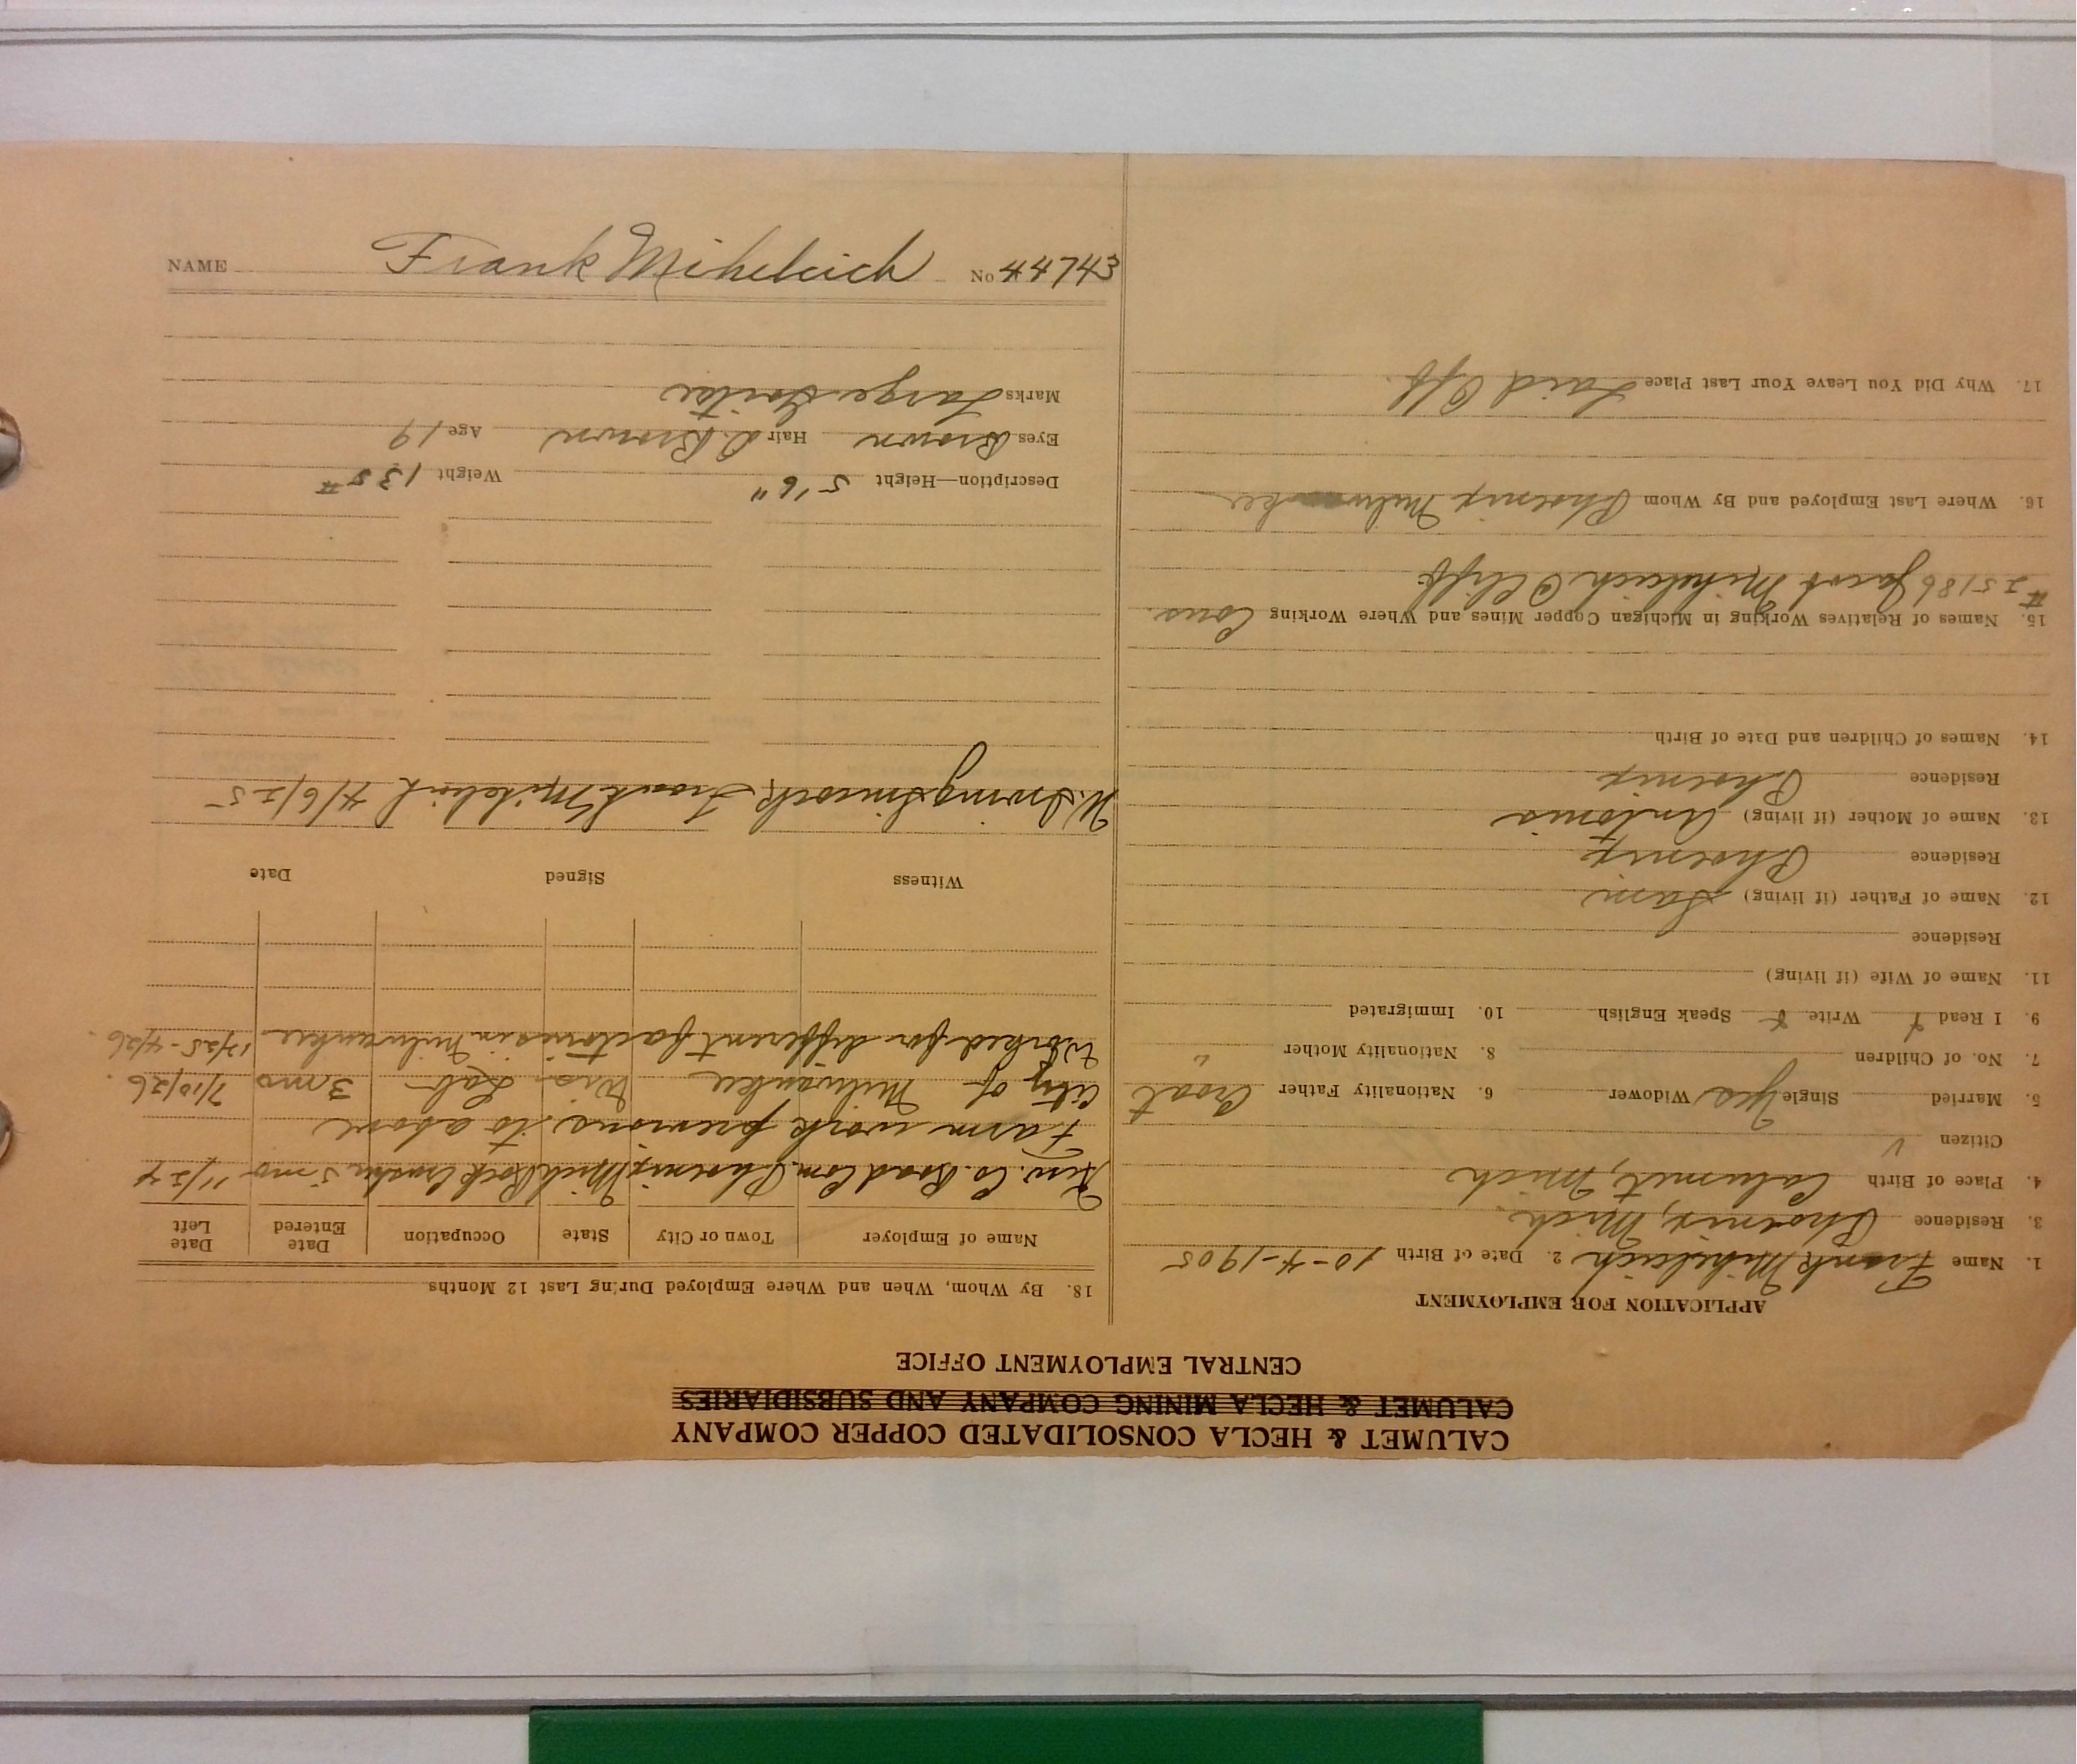 CALUMET & HECLA CONSOLIDATED COPPER COMPANY
CALUMET & HECLA MINING COMPANY AND SUBSIDIARIES
CENTRAL EMPLOYMENT OFFICE
APPLICATION FOR EMPLOYMENT
1. Name Frank Mihelcich 2. Date of Birth 10-4-1905
3. Residence Phoenix, Mich.
4. Place of Birth Calumet, Mich
Citizen √
5. Married Single Yes Widower 6. Nationality Father Croat
7. No. of Children 8. Nationality Mother "
9. I Read Write Speak English 10. Immigrated
11. Name of Wife (if living)
Residence
12. Name of Father (if living) Sam
Residence Phoenix
13. Name of Mother (if living) Antonia
Residence Phoenix
14. Names of Children and Date of Birth
15. Names of Relatives Working in Michigan Copper Mines and Where Working Cous.
#25186 Jacob Mihelcich Cliff
16. Where Last Employed and By Whom Phoenix Milwaukee
17. Why Did You Leave Your Last Place Laid Off.
18. By Whom, When and Where Employed During Last 12 Months
Name of Employer Town or City State Occupation Date Entered Date Left
Kew. Co. Road Com. Phoenix Mich Rock Crusher 5 mo 11/24
Farm work previous to above
City of Milwaukee Wis. Lab 3 mo 7/10/26.
Worked for different factories in Milwaukee 12/25-4/26.
Witness Signed Date
W. Irving Smcock Frank Mihelcich 4/6/25
Description—Height 5'6" Weight 135#
Eyes Brown Hair D. Brown Age 19
Marks Large Goitre
NAME Frank Mihelcich No 44743